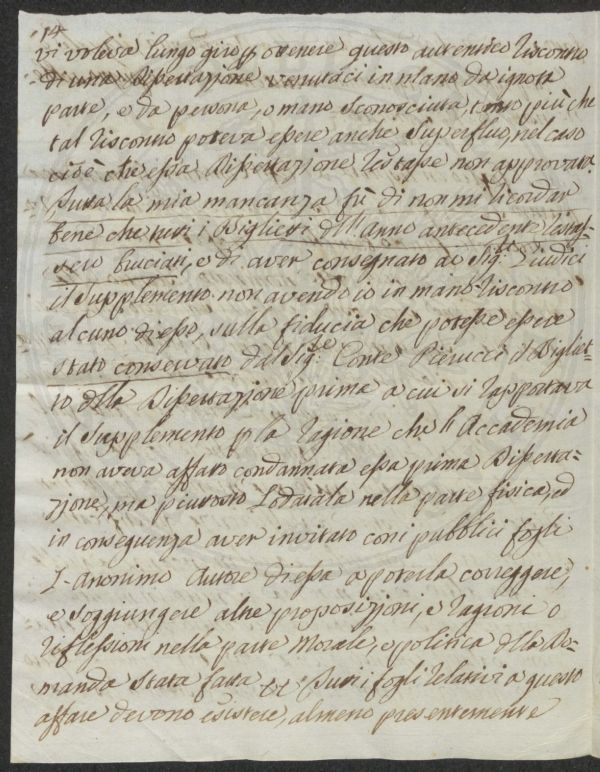 14
vi voleva lungo giro p ottenere questo autentico riscontro
di una Dissertazione venutaci in mano da ignota
parte, e da persona, o mano sconosciuta, tanto più che
tal riscontro poteva essere anche superfluo, nel caso
cioè che essa Dissertazione restasse non approvata.
Tutta la mia mancanza fù di non mi ricordar
bene che tutti i Biglietti dell'anno antecedente restas-
sero bruciati, e di aver consegnato ai Sigri Giudici
il Supplemento non avendo io in mano riscontro
alcuno di esso, sulla fiducia che potesse essere
stato conservato dal Sige Conte Pierucci il Bigliet-
to della Dissertazione prima a cui si rapportava
il Supplemento p la ragione che l'Accademia
non aveva affatto condannata essa prima Disserta-
zione, ma piuttosto Lodatala nella parte fisica, ed
in conseguenza aver invitato con i pubblici fogli
L'Anonimo Autore di essa a poterla correggere,
e soggiungere altre proposizioni, e ragioni o
riflessioni nella parte Morale, e politica della Do-
manda stata fatta &c Tutti i fogli relativi a questo
affare devono esistere, almeno presentemente